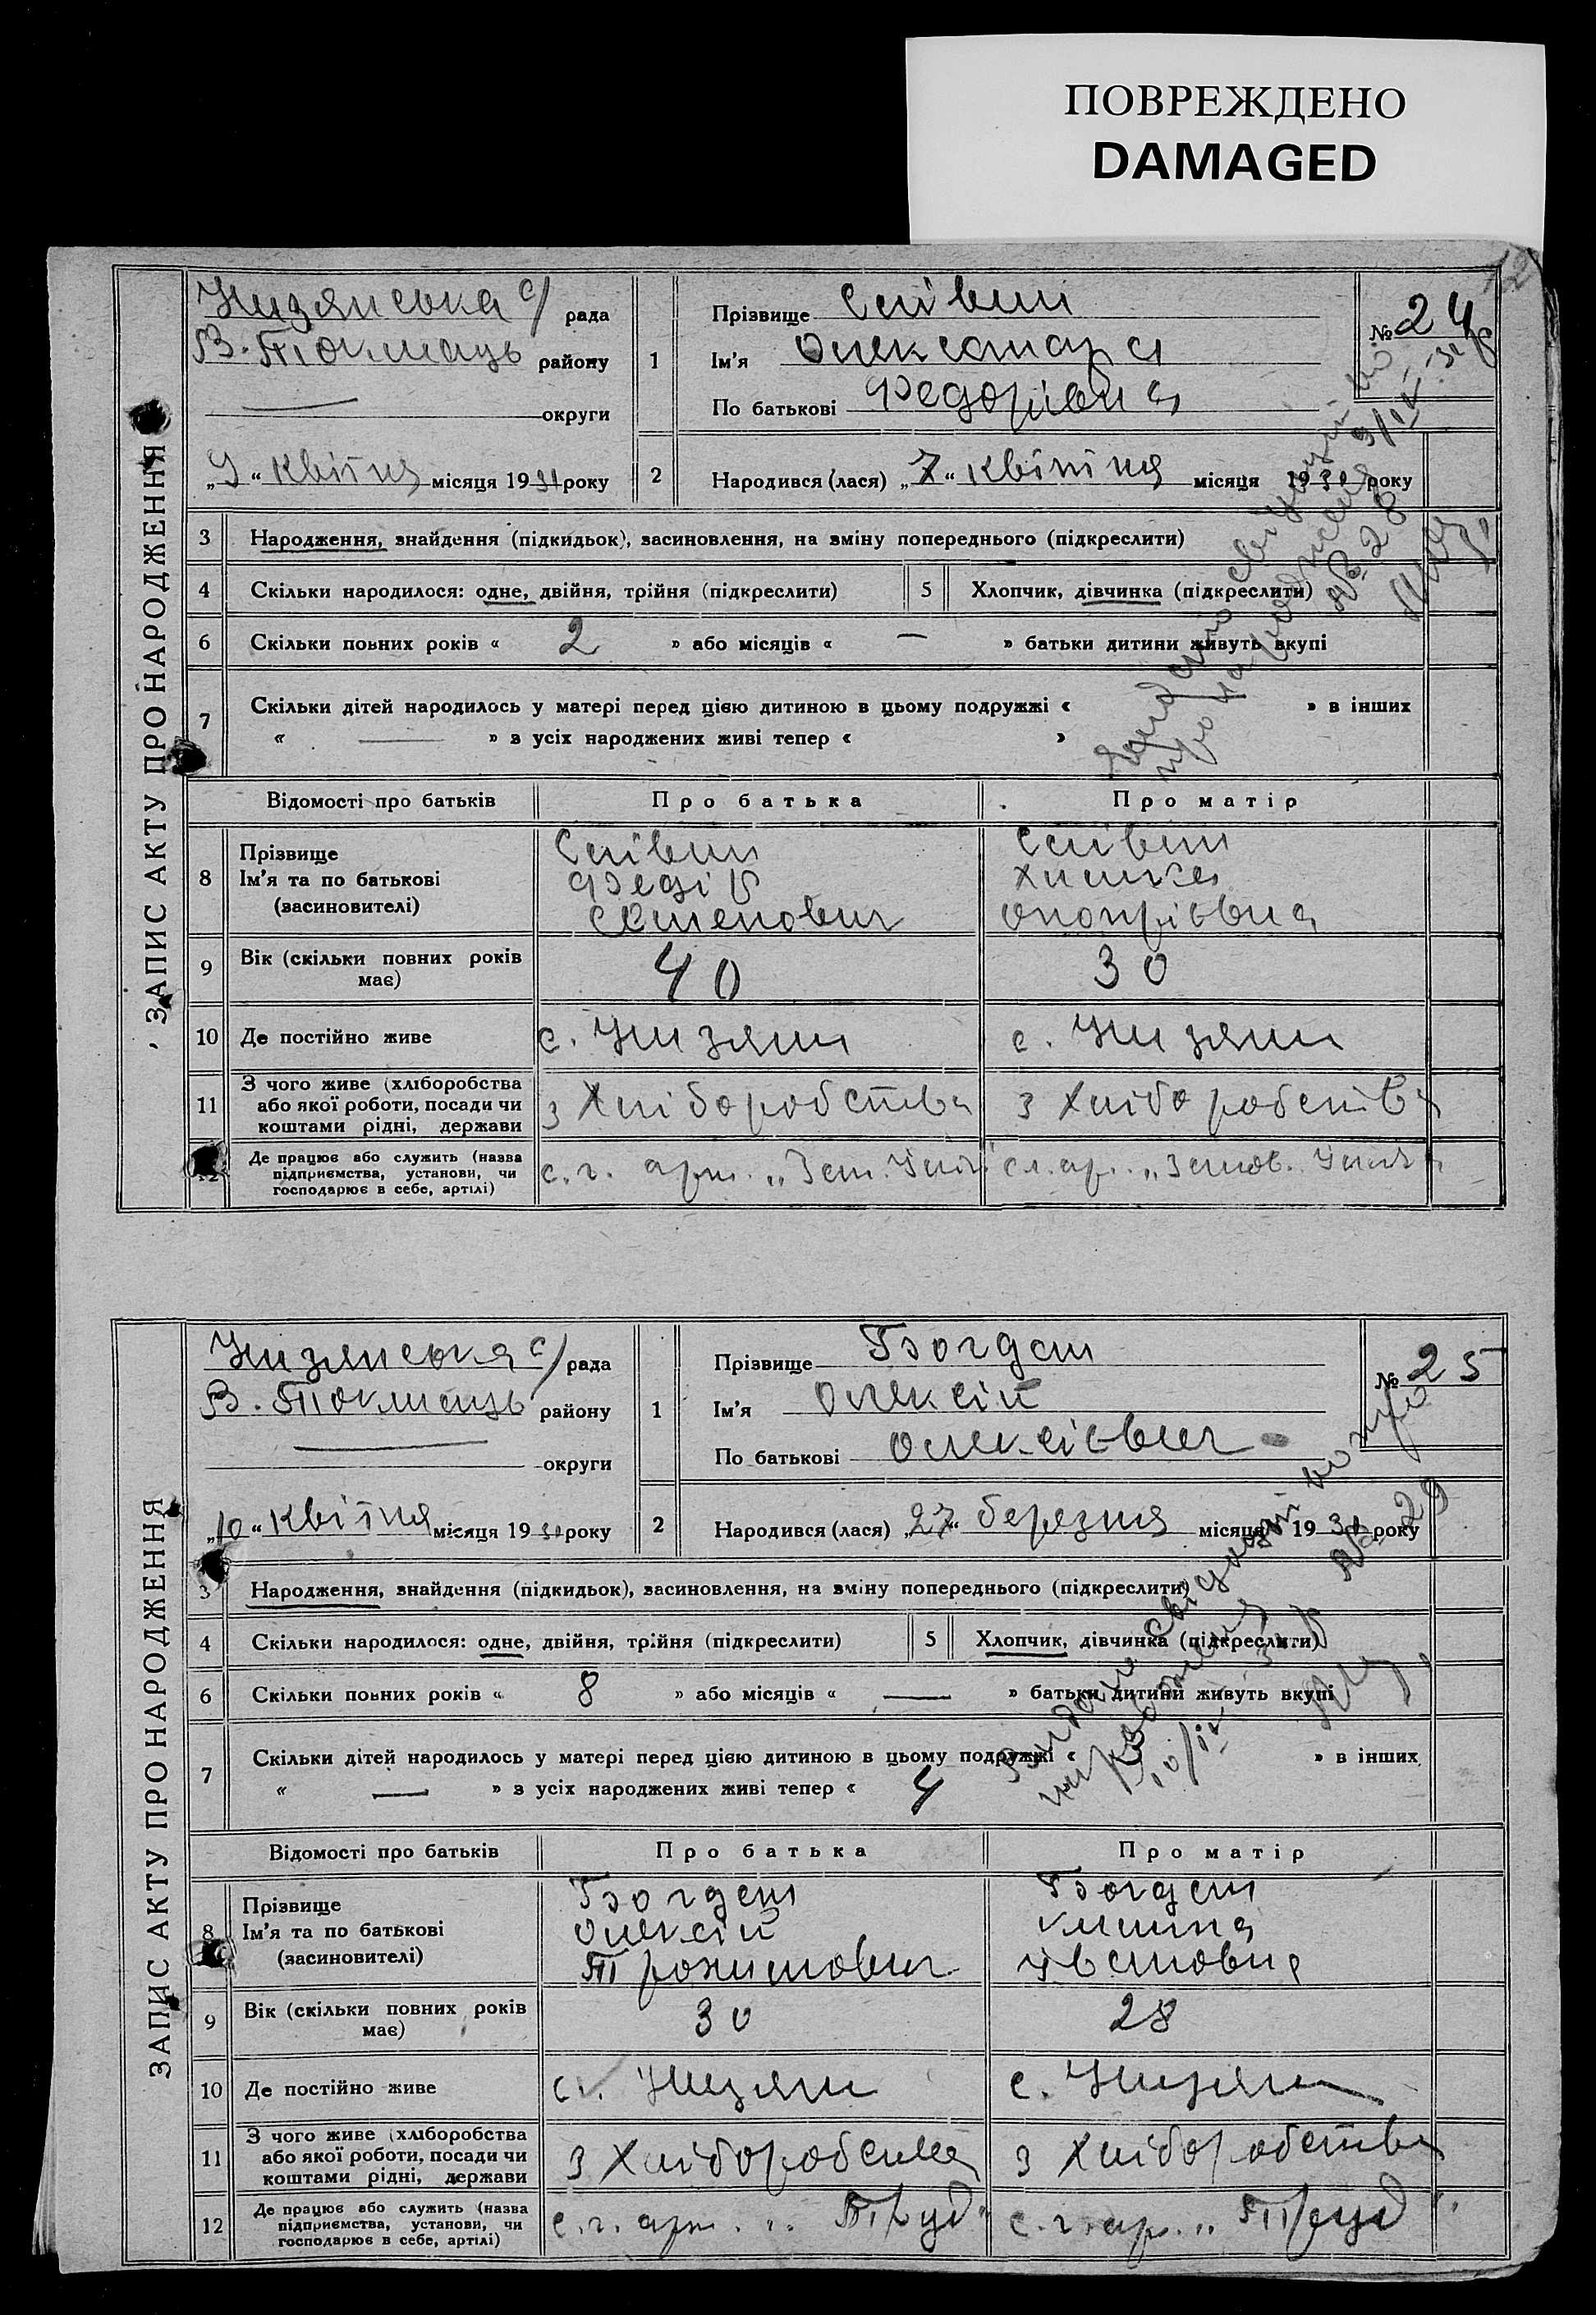 ПОВРЕЖДЕНО
DAMAGED
ЗАПИС АКТУ ПРО НАРОДЖЕННЯ
Низянська с/рада
В.-Токмаць району
округи
„9“ квітня місяця 1931 року
1
Прізвище
Ім'я Олександра
По батькові Федорівна
№ 24
2
Народився (лася) „7“ квітня місяця 1931 року
3 Народження, знайдення (підкидьок), засиновлення, на зміну попереднього (підкреслити)
4 Скільки народилося: одне, двійня, трійня (підкреслити)
5 Хлопчик, дівчинка (підкреслити)
6 Скільки повних років « 2 » або місяців « — » батьки дитини живуть вкупі
7 Скільки дітей народилось у матері перед цією дитиною в цьому подружжі « — » в інших
« — » з усіх народжених живі тепер « »
Видано свідоцтво
про народження 9/IV-31 р
№ 28
Відомості про батьків Про батька Про матір
8 Прізвище
Ім'я та по батькові
(засиновителі)
Федір
Семенович
Онопрієвна
9 Вік (скільки повних років
має)
40
30
10 Де постійно живе
с. Низяни
с. Низяни
11 З чого живе (хліборобства
або якої роботи, посади чи
коштами рідні, держави
з хліборобства
з хліборобства
12 Де працює або служить (назва
підприємства, установи, чи
господарює в себе, артілі)
с.г. арт. „
ЗАПИС АКТУ ПРО НАРОДЖЕННЯ
Низянська с/рада
В.-Токмаць району
округи
„10“ квітня місяця 1931 року
1
Прізвище Богдан
Ім'я Олексій
По батькові Олексієвич
№ 25
2
Народився (лася) „27“ березня місяця 1931 року
3 Народження, знайдення (підкидьок), засиновлення, на зміну попереднього (підкреслити)
4 Скільки народилося: одне, двійня, трійня (підкреслити)
5 Хлопчик, дівчинка (підкреслити)
6 Скільки повних років « 8 » або місяців « — » батьки дитини живуть вкупі
7 Скільки дітей народилось у матері перед цією дитиною в цьому подружжі « » в інших
« — » з усіх народжених живі тепер « 4
Видано свідоцтво про
народження № 29
10/IV 31 р
Відомості про батьків Про батька Про матір
8 Прізвище
Ім'я та по батькові
(засиновителі)
Богдан
Олексій
Трохимович
Богдан
Івановна
9 Вік (скільки повних років
має)
30
28
10 Де постійно живе
с. Низяни
с. Низяни
11 З чого живе (хліборобства
або якої роботи, посади чи
коштами рідні, держави
з хліборобства
з хліборобства
12 Де працює або служить (назва
підприємства, установи, чи
господарює в себе, артілі)
с.г. арт. „Труд“
с.г. ар. „Труд“